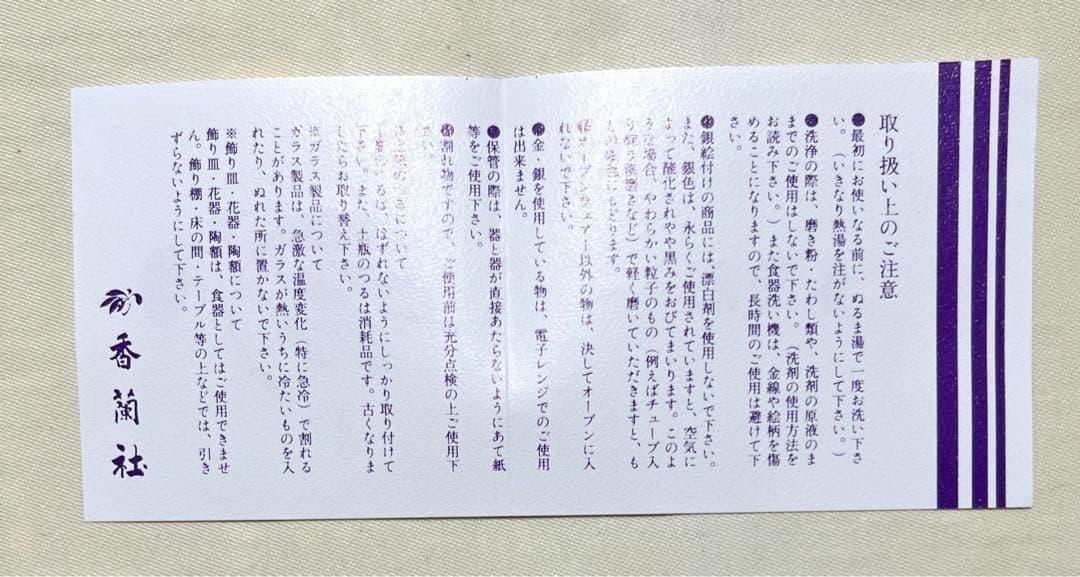 取り扱い上のご注意
最初にお使いなる前に、ぬるま湯で一度お洗い下さ
い。（いきなり熱湯を注がないようにして下さい。）
洗浄の際は、磨き粉・たわし類や、洗剤の原液のま
までのご使用はしないで下さい。（洗剤の使用方法を
お読み下さい。）また食器洗い機は、金線や絵柄を傷
めることになりますので、長時間のご使用は避けて下
さい。
銀絵付けの商品には、漂白剤を使用しないで下さい。
また、銀色は、永らくご使用されていますと、空気に
よって酸化されやや黒みをおびてまいります。このよ
うな場合、やわらかい粒子のもの（例えばチューブ入
り練り歯磨きなど）で軽く磨いていただきますと、も
との銀色にもどります。
オーブンウェアー以外の物は、決してオーブンに入
れないで下さい。
金・銀を使用している物は、電子レンジでのご使用
は出来ません。
保管の際は、器と器が直接あたらないようにあて紙
等をご使用下さい。
割れ物ですので、ご使用前は充分点検の上ご使用下
さい。
について
は、はずれないようにしっかり取り付けて
下さい。また、土瓶のつるは消耗品です。古くなりま
したらお取り替え下さい。
※ガラス製品について
ガラス製品は、急激な温度変化（特に急冷）で割れる
ことがあります。ガラスが熱いうちに冷たいものを入
れたり、ぬれた所に置かないで下さい。
※飾り皿・花器・陶額について
飾り皿・花器・陶額は、食器としてはご使用できませ
ん。飾り棚・床の間・テーブル等の上などでは、引き
ずらないようにして下さい。
香蘭社